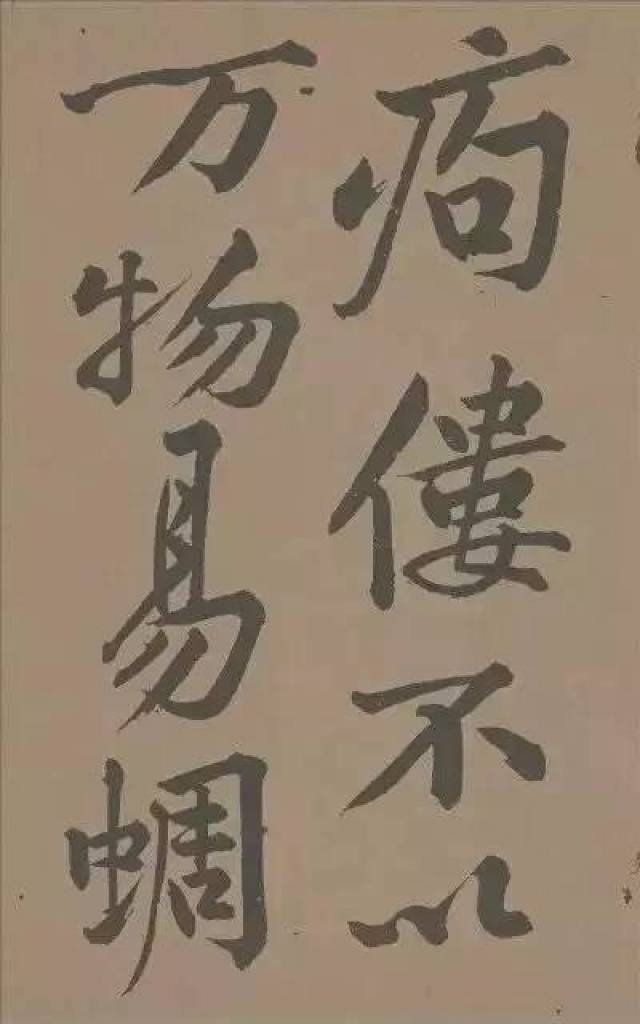 痀僂不以
万物易蜩